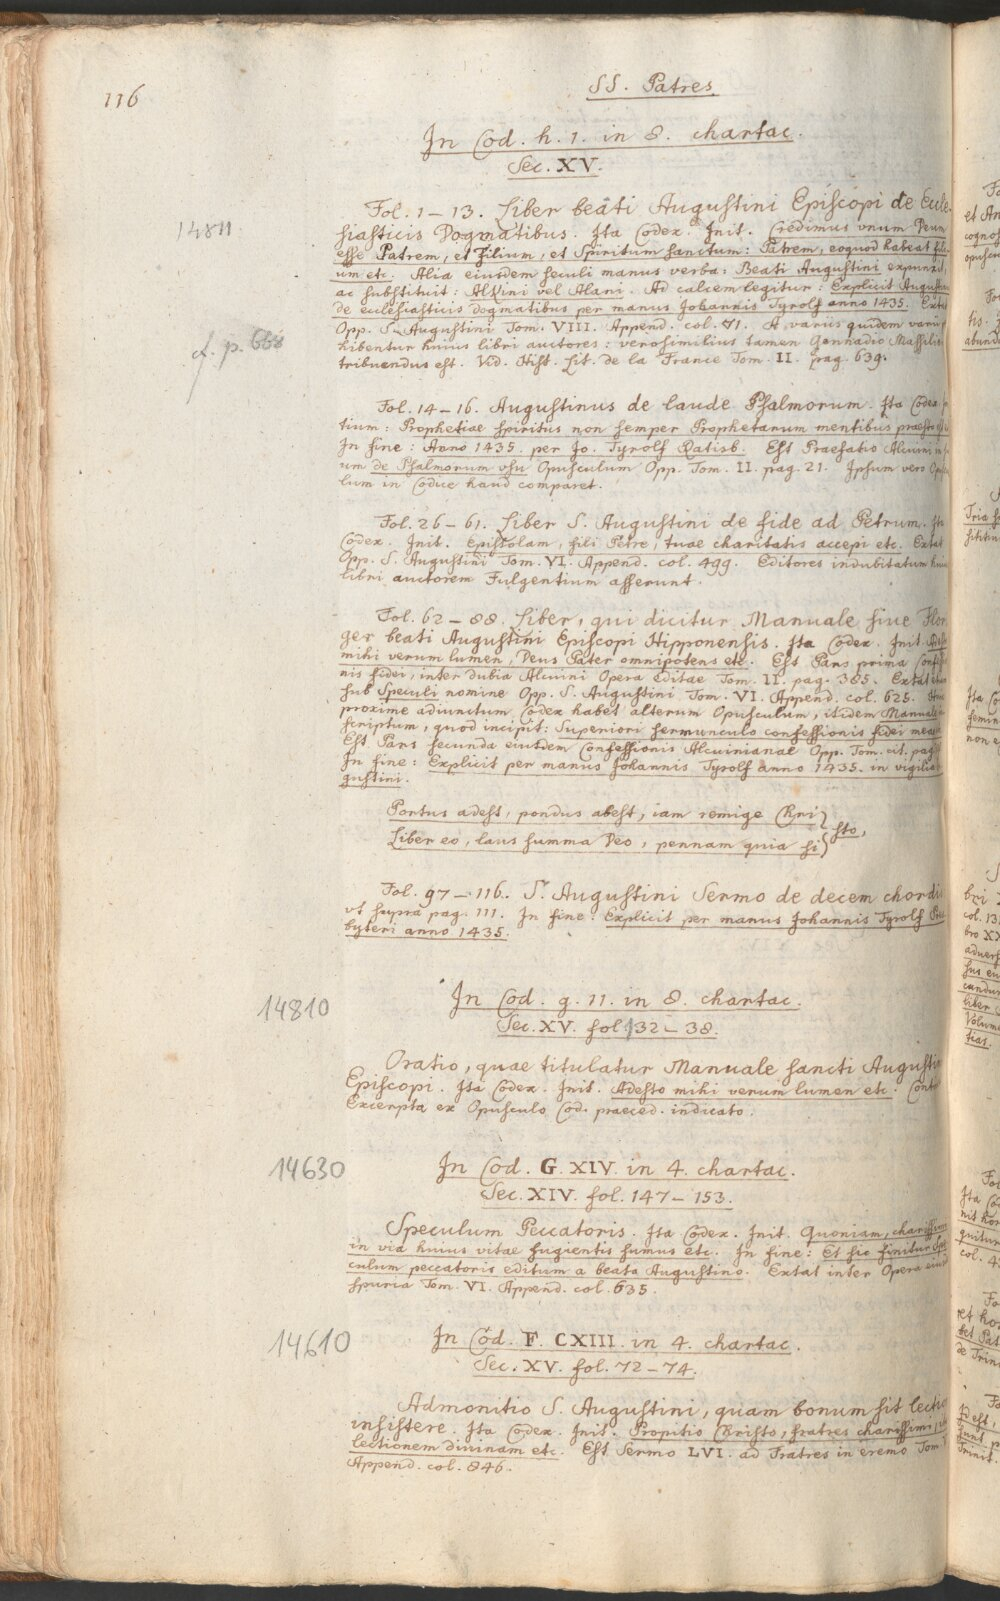 116
SS. Patres
In Cod. h. 1. in 8. chartac.
Sec. XV.
14811
Fol. 1–13. Liber beati Augustini Episcopi de Eccle-
siasticis Dogmatibus. Ita Codex. Init. Credimus vnum Deum
esse Patrem, et Filium, et Spiritum sanctum: Patrem, eoquod habeat fili-
um etc. Alia eiusdem seculi manus verba: Beati Augustini expunxit,
ac substituit: Alkini vel Alani. Ad calcem legitur: Explicit Augustinus
de ecclesiasticis dogmatibus per manus Johannis Tyrolf anno 1435. Extat
Opp. S. Augustini Tom. VIII. Append. col. 71. A variis quidem varii
hibentur huius libri auctores: verosimilius tamen Gennadio Massiliensi
tribuendus est. Vid. Hist. Lit. de la France Tom. II. pag. 639.
cf. p. 668
Fol. 14–16. Augustinus de laude Psalmorum. Ita Codex
tium: Prophetiae spiritus non semper Prophetarum mentibus praesto
In fine: Anno 1435. per Jo. Tyrolf Ratisb. Est Praefatio Alcuini in
um de Psalmorum vsu Opusculum Opp. Tom. II. pag. 21. Ipsum vero Opuscu-
lum in Codice haud comparet.
Fol. 26–61. Liber S. Augustini de fide ad Petrum. Ita
Codex. Init. Epistolam, fili Petre, tuae charitatis accepi etc. Extat
Opp. S. Augustini Tom. VI. Append. col. 499. Editores indubitatum huius
libri auctorem Fulgentium asserunt.
Fol. 62–88. Liber, qui dicitur Manuale siue Flori-
ger beati Augustini Episcopi Hipponensis. Ita Codex. Init. Adesto
mihi verum lumen, Deus Pater omnipotens etc. Est Pars prima Confessio-
nis fidei, inter dubia Alcuini Opera editae Tom. II. pag. 385. Extat etiam
sub Speculi nomine Opp. S. Augustini Tom. VI. Append. col. 625.
proxime adiunctum Codex habet alterum Opusculum, itidem Manuale
scriptum, quod incipit: Superiori sermunculo confessionis fidei meae
Est Pars secunda eiusdem Confessionis Alcuinianae Opp. Tom. cit. pag.
In fine: Explicit per manus Johannis Tyrolf anno 1435. in vigilia
gustini.
Portus adest, pondus abest, iam remige Chri} sto,
Liber eo, laus summa Deo, pennam quia si}
Fol. 97–116. S. Augustini Sermo de decem chordis
vt supra pag. 111. In fine: Explicit per manus Johannis Tyrolf Pres-
byteri anno 1435.
14810
In Cod. g. 11. in 8. chartac.
Sec. XV. fol. 132–38.
Oratio, quae titulatur Manuale sancti Augustini
Episcopi. Ita Codex. Init. Adesto mihi verum lumen etc.
Excerpta ex Opusculo Cod. praeced. indicato.
14630
In Cod. G. XIV. in 4. chartac.
Sec. XIV. fol. 147–153.
Speculum Peccatoris. Ita Codex. Init. Quoniam, charissimi
in via huius vitae fugientis sumus etc. In fine: Et sic finitur Spe-
culum peccatoris editum a beato Augustino. Extat inter Opera eius
spuria Tom. VI. Append. col. 635.
14610
In Cod. F. CXIII. in 4. chartac.
Sec. XV. fol. 72–74.
Admonitio S. Augustini, quam bonum sit lectioni
insistere. Ita Codex. Init. Propitio Christo, fratres charissimi,
lectionem diuinam etc. Est Sermo LVI. ad Fratres in eremo Tom.
Append. col. 846.